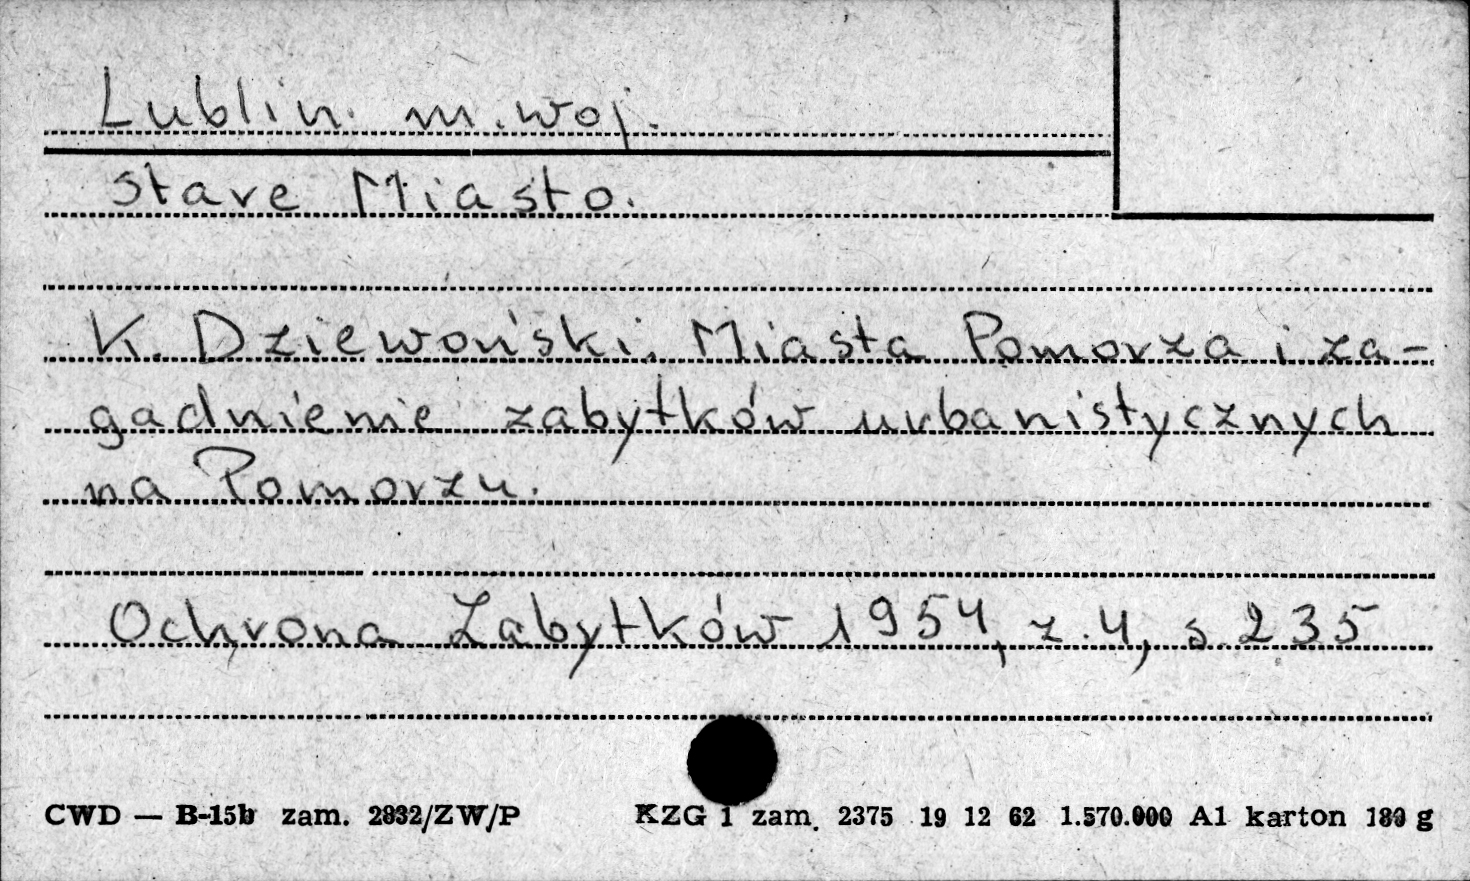 Lublin. m. woj.
Stare Miasto.
K. Dziewoński, Miasta Pomorza i za-
gadnienie zabytków urbanistycznych
na Pomorzu.
Ochrona Zabytków 1954, z. 4, s. 235
CWD — B-15b zam. 2832/ZW/P KZG 1 zam. 2375 19 12 62 1.570.000 A1 karton 180 g